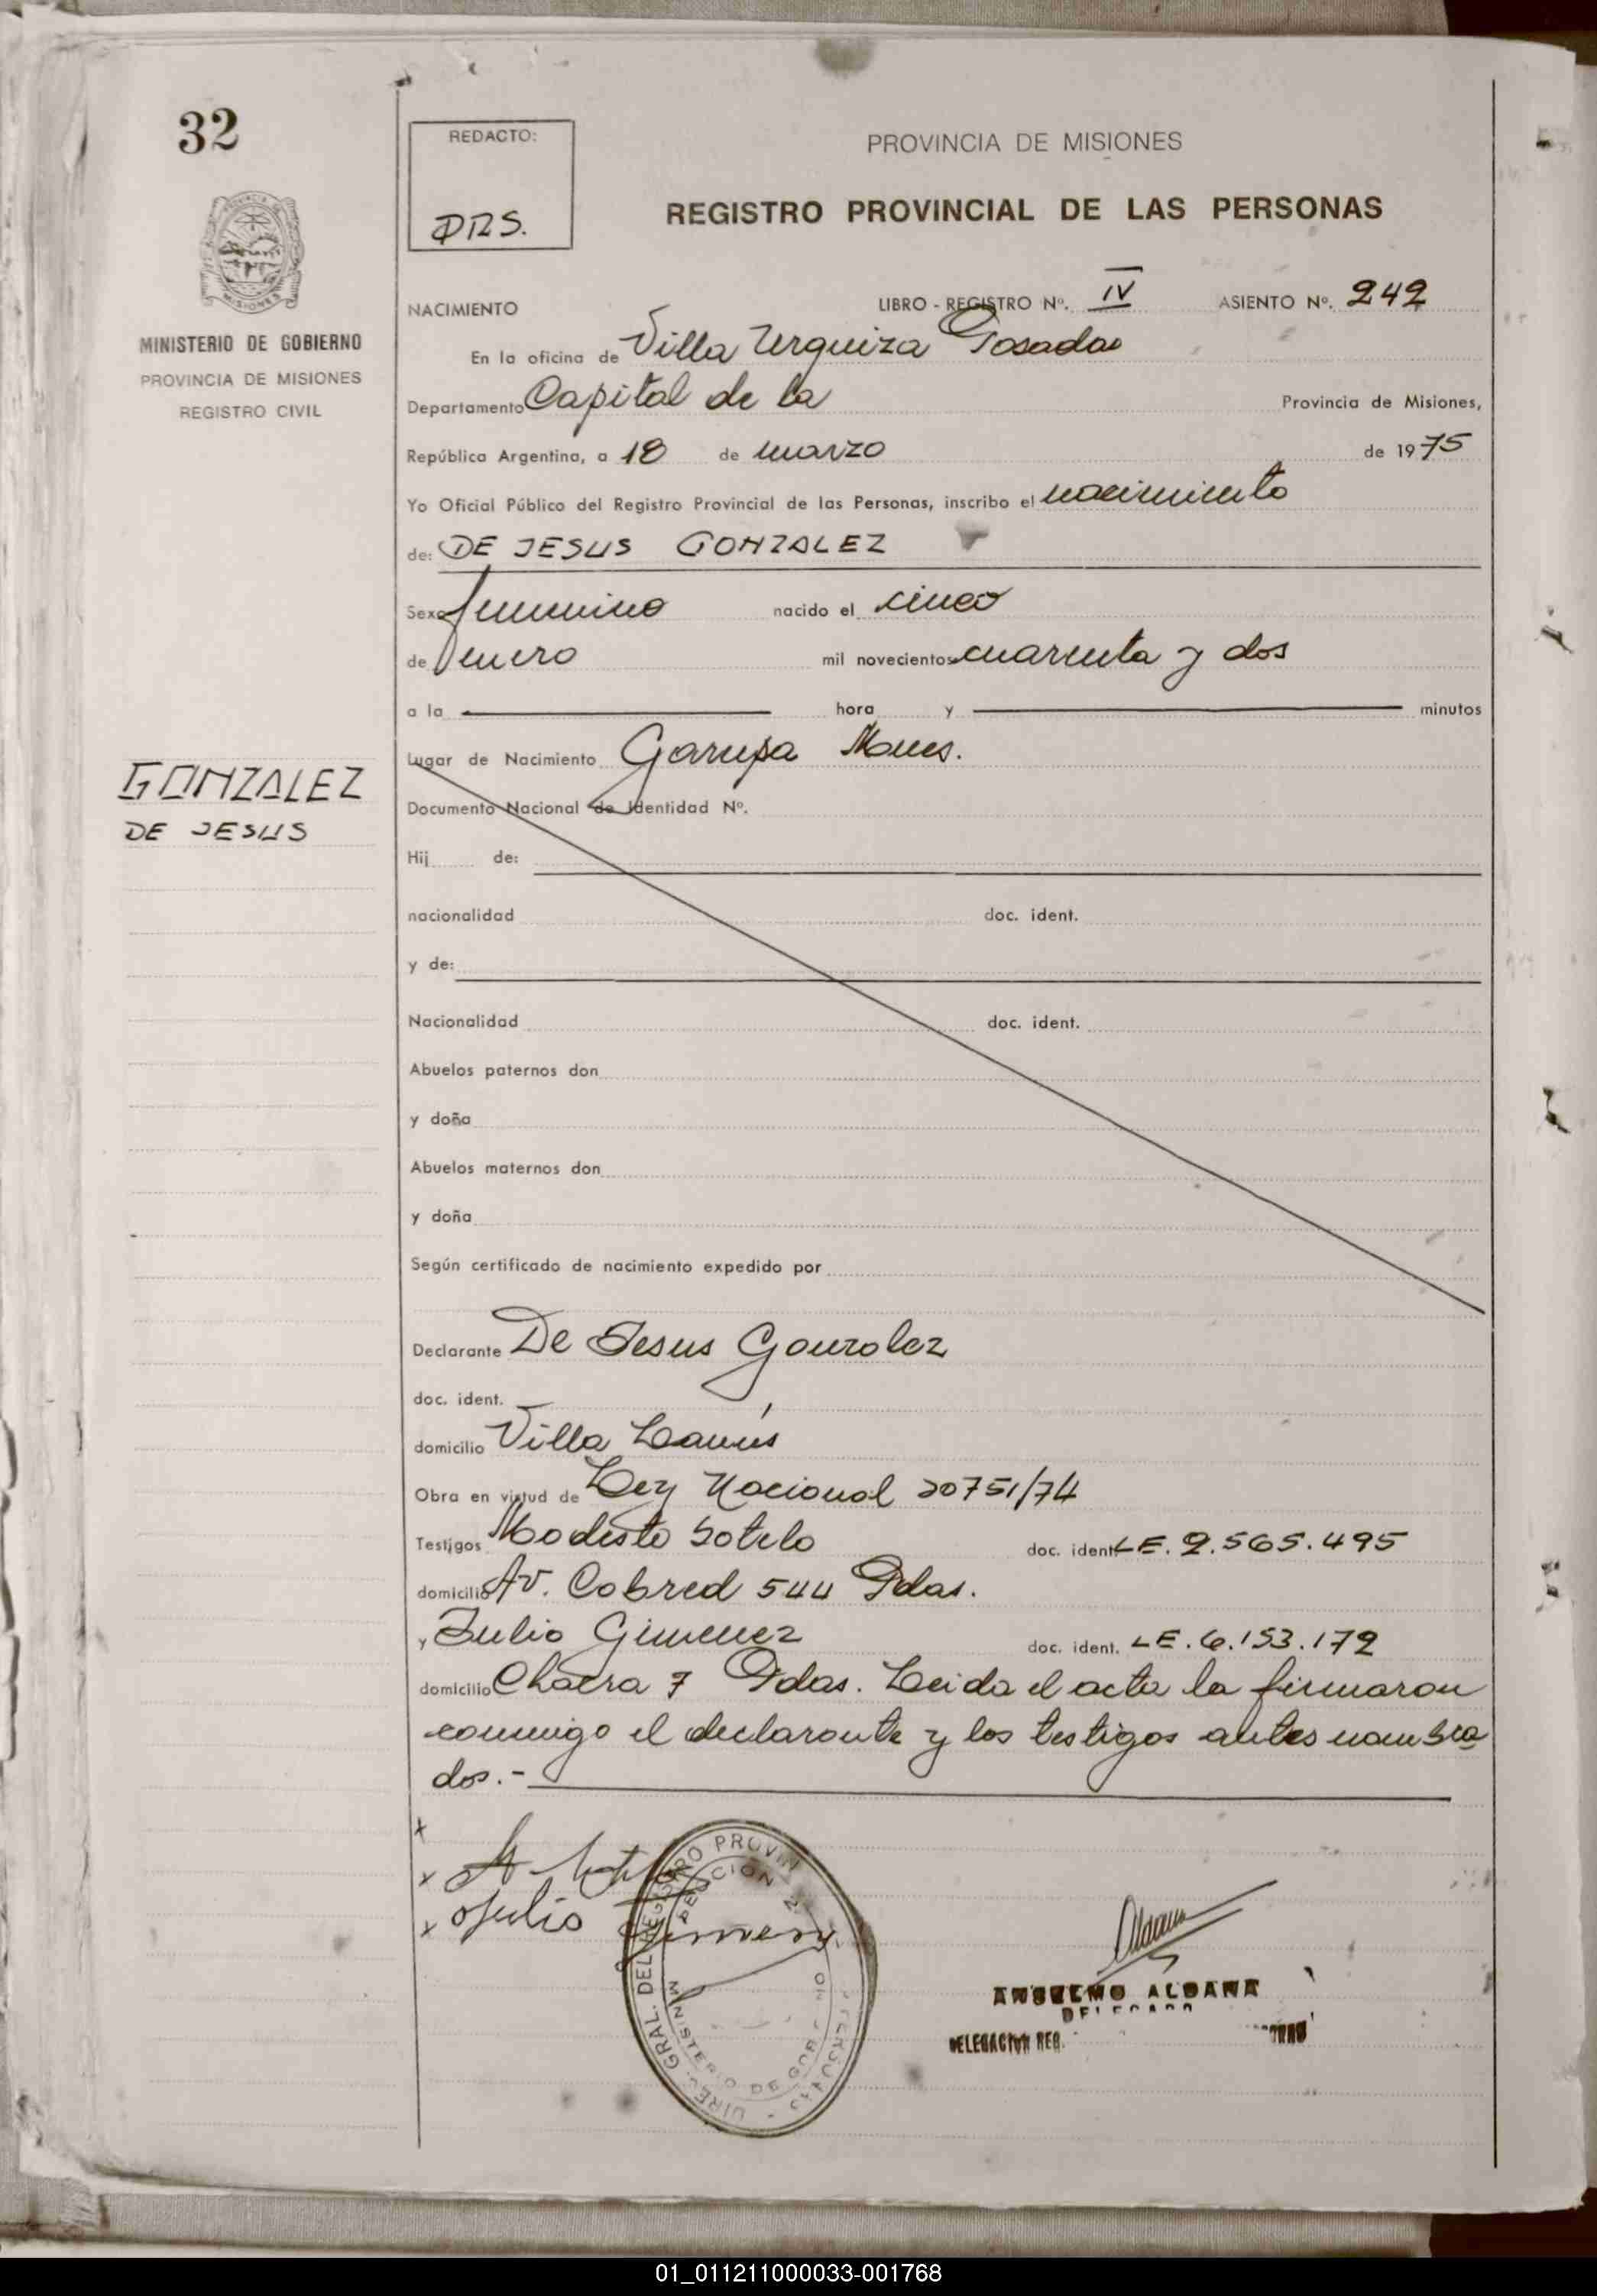 32
MINISTERIO DE GOBIERNO
PROVINCIA DE MISIONES
REGISTRO CIVIL
GONZALEZ
DE JESUS
REDACTO:
DRS.
PROVINCIA DE MISIONES
REGISTRO PROVINCIAL DE LAS PERSONAS
NACIMIENTO LIBRO - REGISTRO Nº. IV ASIENTO Nº. 242
En la oficina de Villa Urquiza Posadas
Departamento Capital de la Provincia de Misiones,
República Argentina, a 18 de marzo de 1975
Yo Oficial Público del Registro Provincial de las Personas, inscribo el nacimiento
de: DE JESUS GONZALEZ
Sexo femenino nacido el cinco
de enero mil novecientos cuarenta y dos
a la hora y minutos
Lugar de Nacimiento Garupa Mones.
Documento Nacional de Identidad Nº.
Hij de:
nacionalidad doc. ident.
y de:
Nacionalidad doc. ident.
Abuelos paternos don
y doña
Abuelos maternos don
y doña
Según certificado de nacimiento expedido por
Declarante De Jesus Gonzalez
doc. ident.
domicilio Villa Lanús
Obra en virtud de Ley Nacional 20751/74
Testigos Modesto Sotelo doc. ident. LE. 2.565.495
domicilio Av. Cobred 544 Pdas.
y Julio Gimenez doc. ident. LE. 6.153.172
domicilio Chacra 7 Pdas. Leida el acta la firmaron
conmigo el declarante y los testigos antes nombra
dos.-
x
x
x Julio Jimenez
DIREC. GRAL. DEL REGISTRO PROVIN
MINISTERIO DE GOB
ANSELMO ALDANA
DELEGADO
DELEGACION REG.
01_011211000033-001768